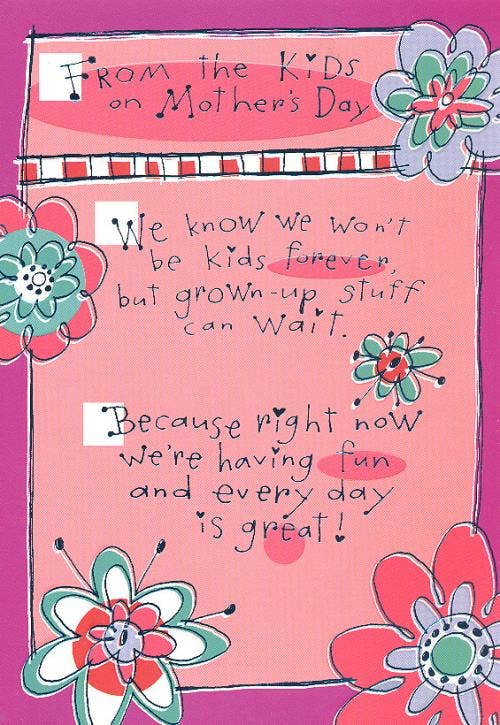 From the Kids
on Mother's Day
We know we won't
be kids forever,
but grown-up stuff
can wait.
Because right now
we're having fun
and every day
is great!